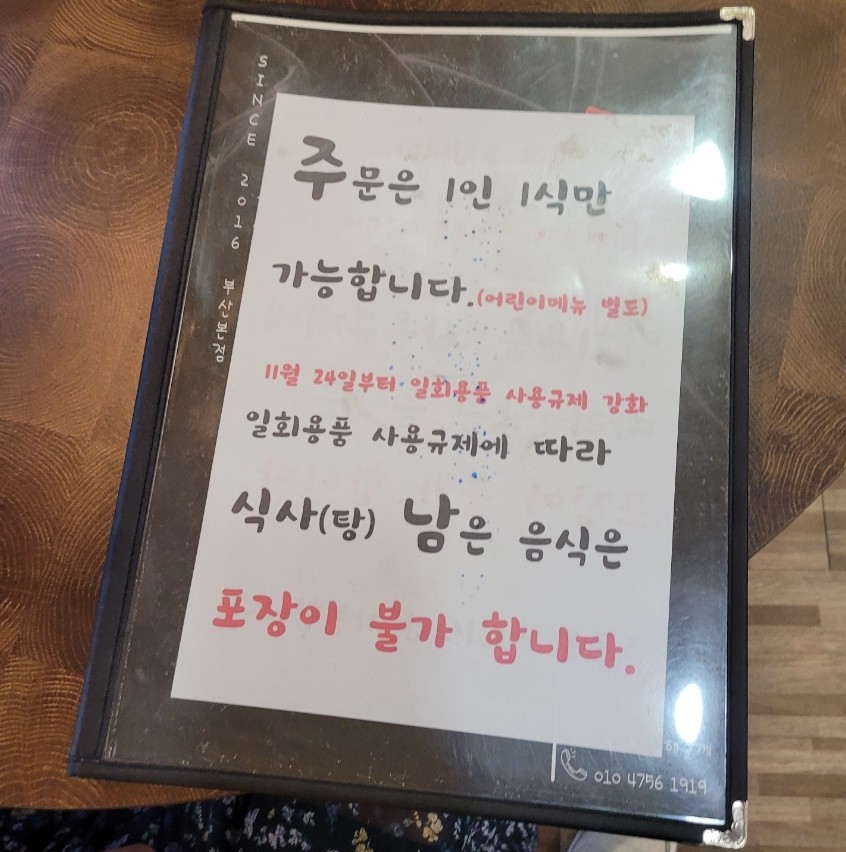 SINCE 2016 부산본점
주문은 1인 1식만
가능합니다.(어린이메뉴 별도)
11월 24일부터 일회용품 사용규제 강화
일회용품 사용규제에 따라
식사(탕) 남은 음식은
포장이 불가 합니다.
010 4756 1919